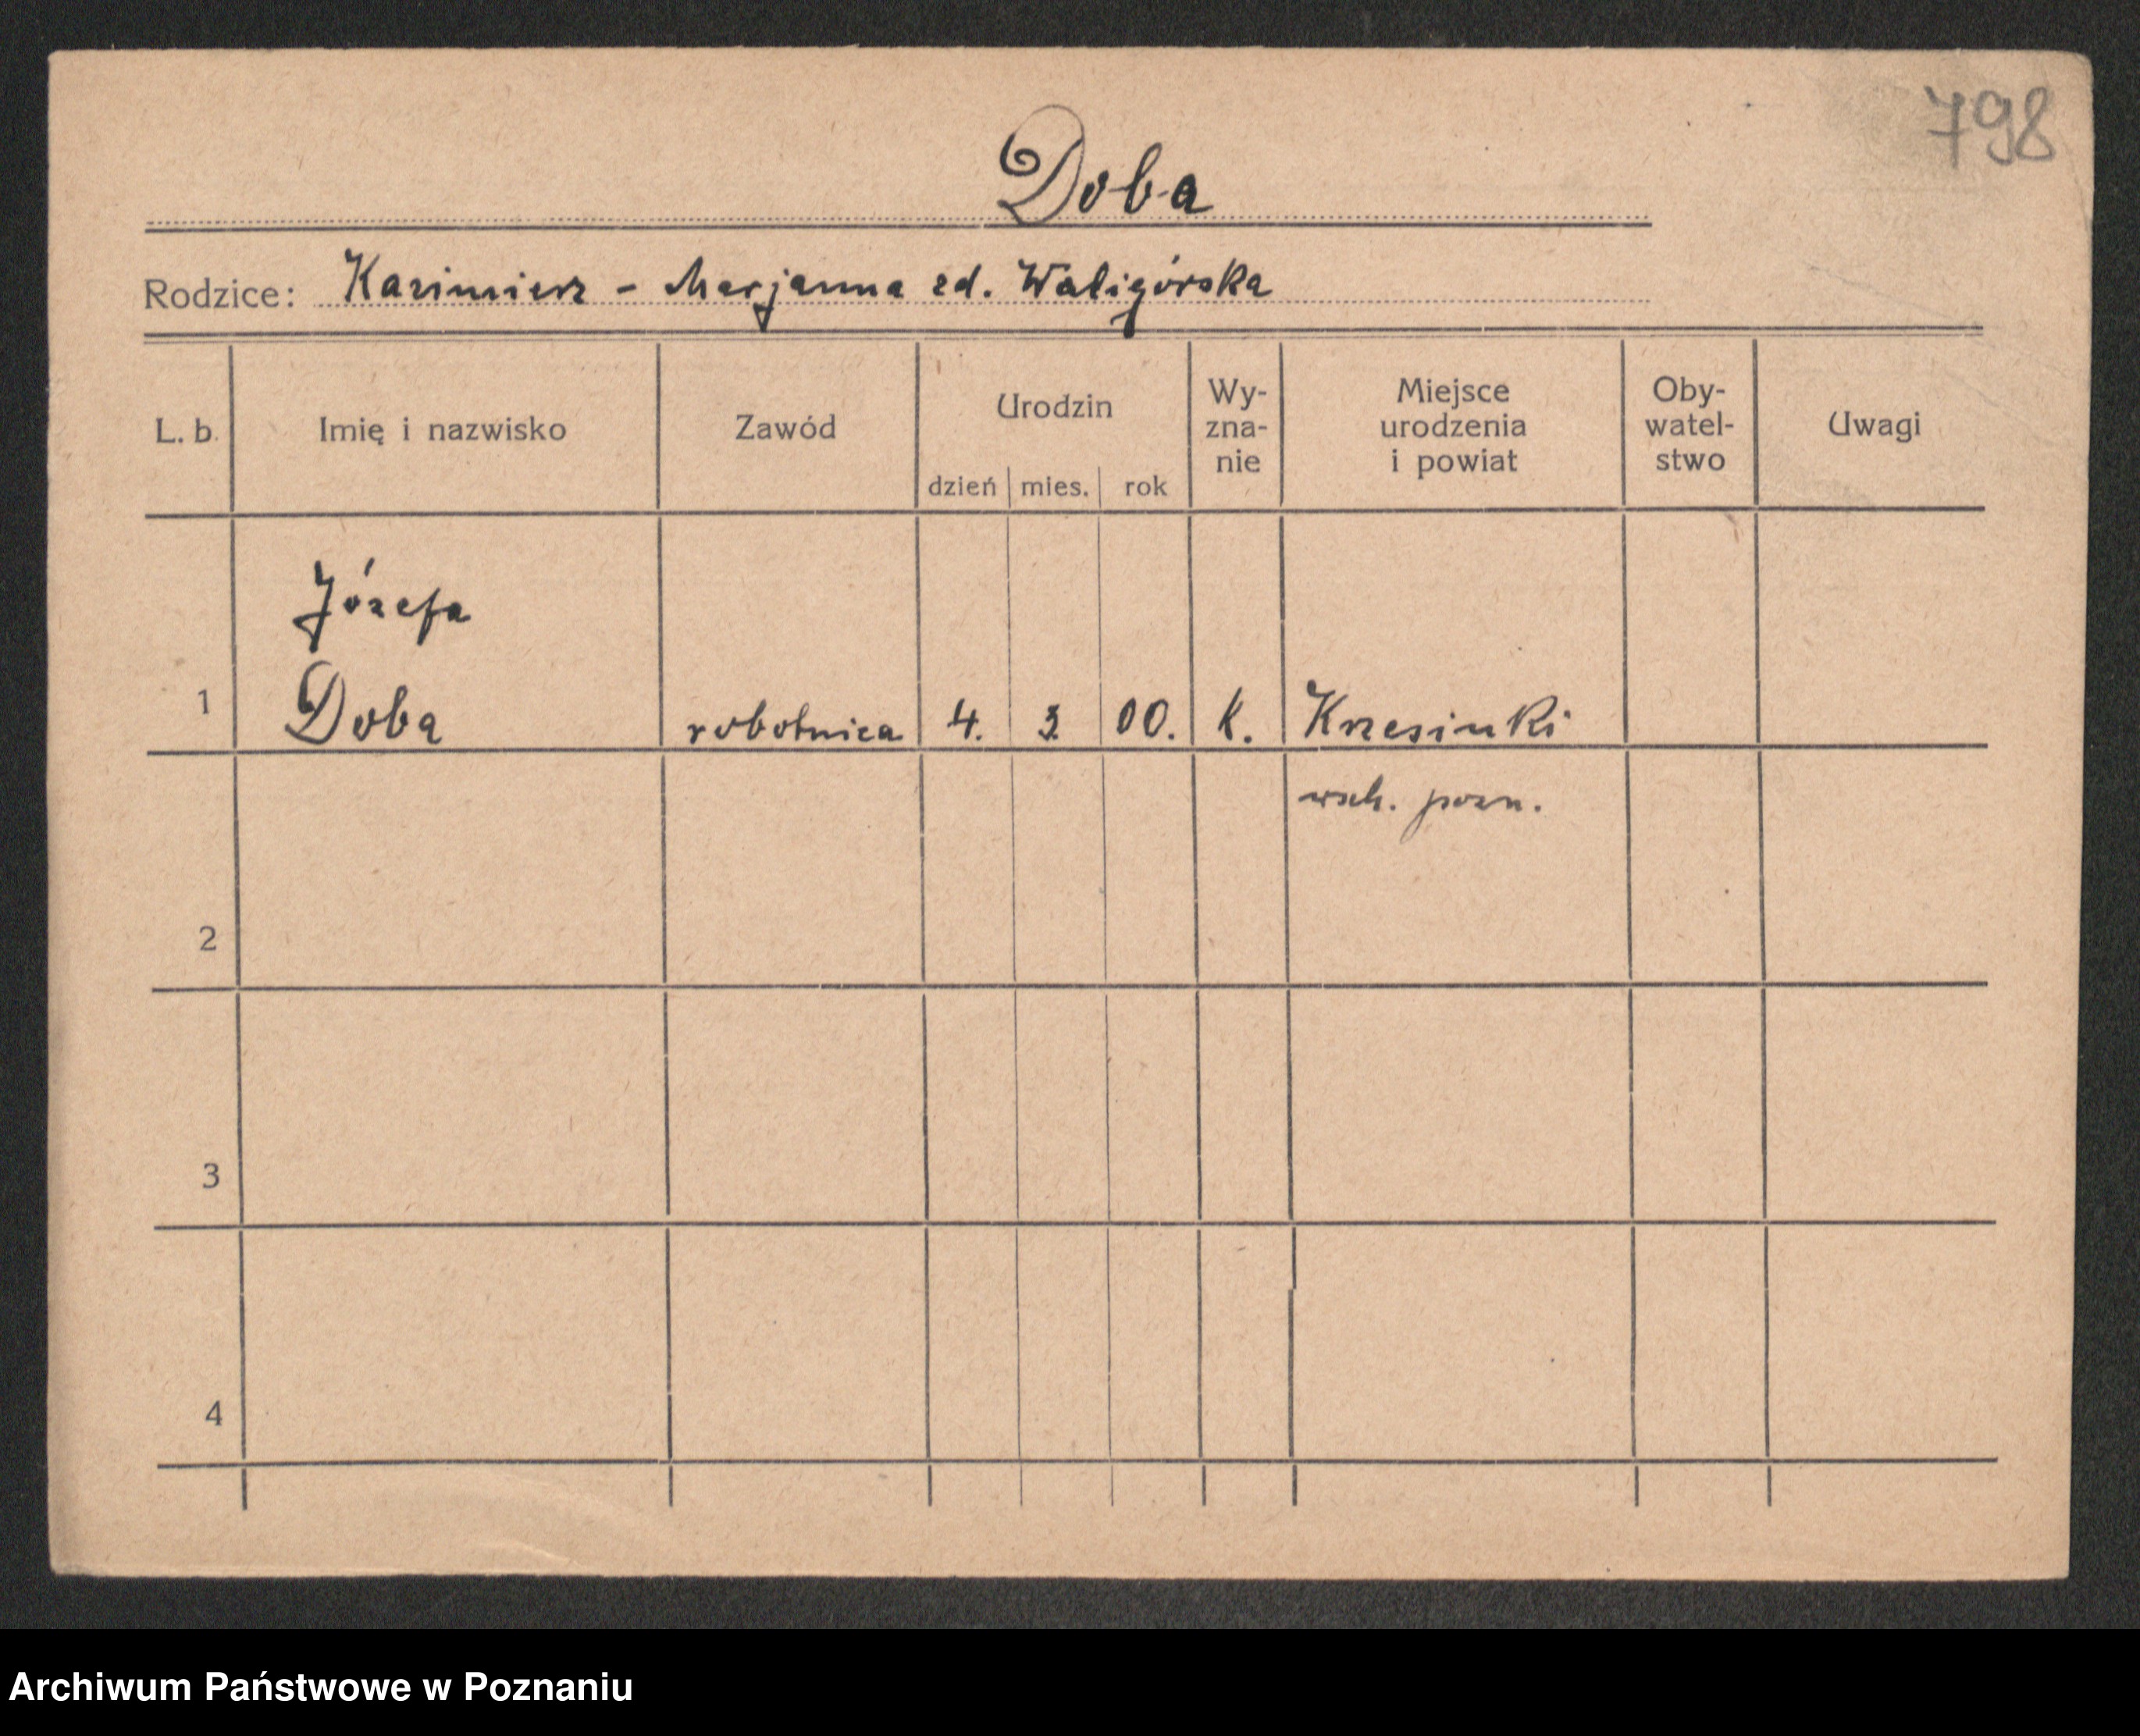 798
Doba
Rodzice: Kazimierz - Marjanna zd. Waligórska
L. b. Imię i nazwisko Zawód Urodzin dzień mies. rok Wy-zna-nie Miejsce urodzenia i powiat Oby-watel-stwo Uwagi
Józefa
1 Doba robotnica 4. 3. 00. k. Krzesinki
wsch. pozn.
2
3
4
Archiwum Państwowe w Poznaniu